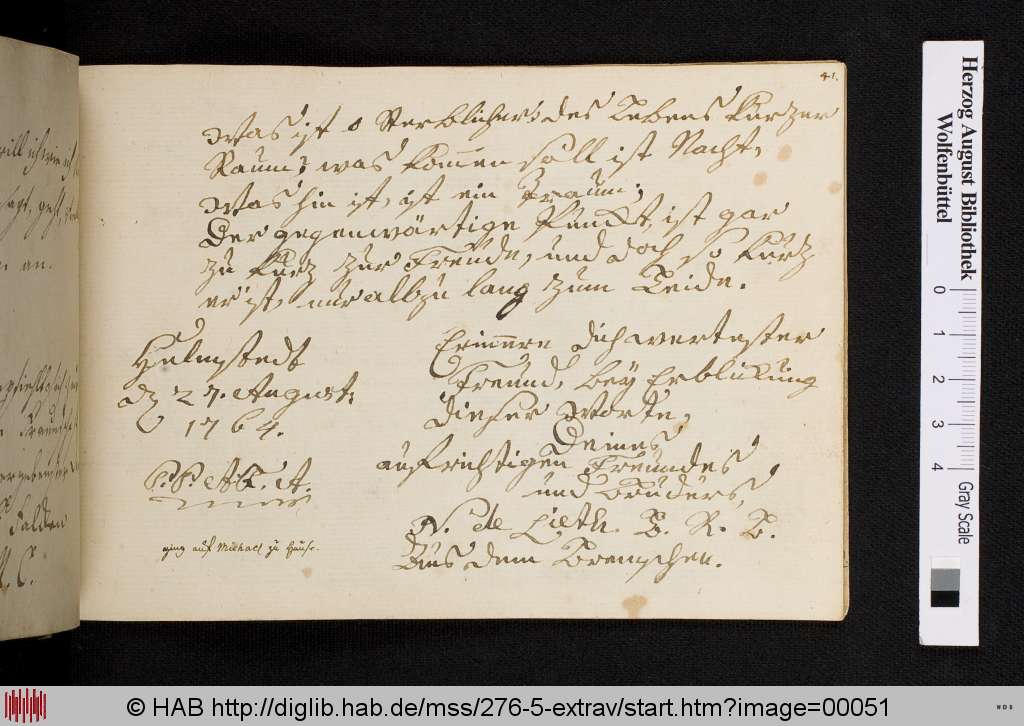 41.
Was ist o Sterblicher des Lebens kurzer
Raum? was kommen soll ist Nacht,
Was hin ist, ist ein Traum;
Der gegenwärtige Punckt, ist gar
zu kurz zur Freude, und doch so kurz
er ist, nur allzu lang zum Leide.
Helmstedt
d 27. August.
1764.
Erinnere dich wertester
Freund, bey Erblickung
dieser Worte,
Deines
aufrichtigen Freundes
und Bruders,
N. de Lieth. B. R. B.
Aus dem Bremschen.
ging auf Michael zu Hause.
Herzog August Bibliothek
Wolfenbüttel
0 1 2 3 4
Gray Scale
© HAB http://diglib.hab.de/mss/276-5-extrav/start.htm?image=00051
WDB